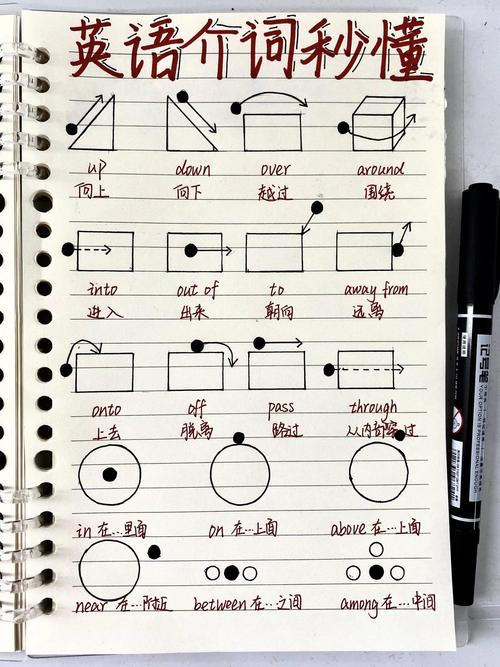 英语介词秒懂
up down over around
向上 向下 越过 围绕
into out of to away from
进入 出来 朝向 远离
onto off pass through
上去 脱离 路过 从内部穿过
in 在…里面 on 在…上面 above 在…上面
near 在…附近 between 在…之间 among 在…中间
记号笔
YOUR OPTION OF PROFESSIONAL